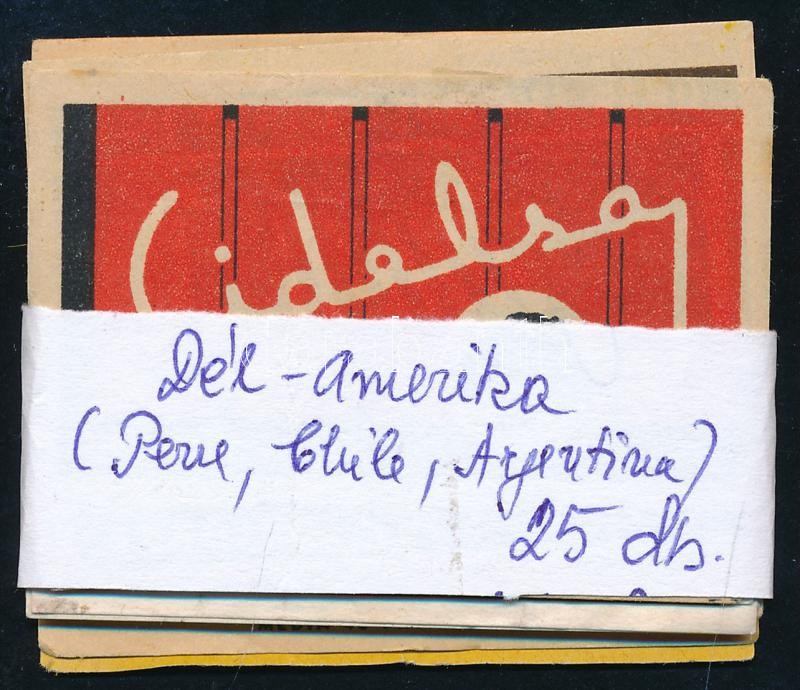 Cidelsa
Dél-Amerika
(Peru, Chile, Argentina)
25 db.